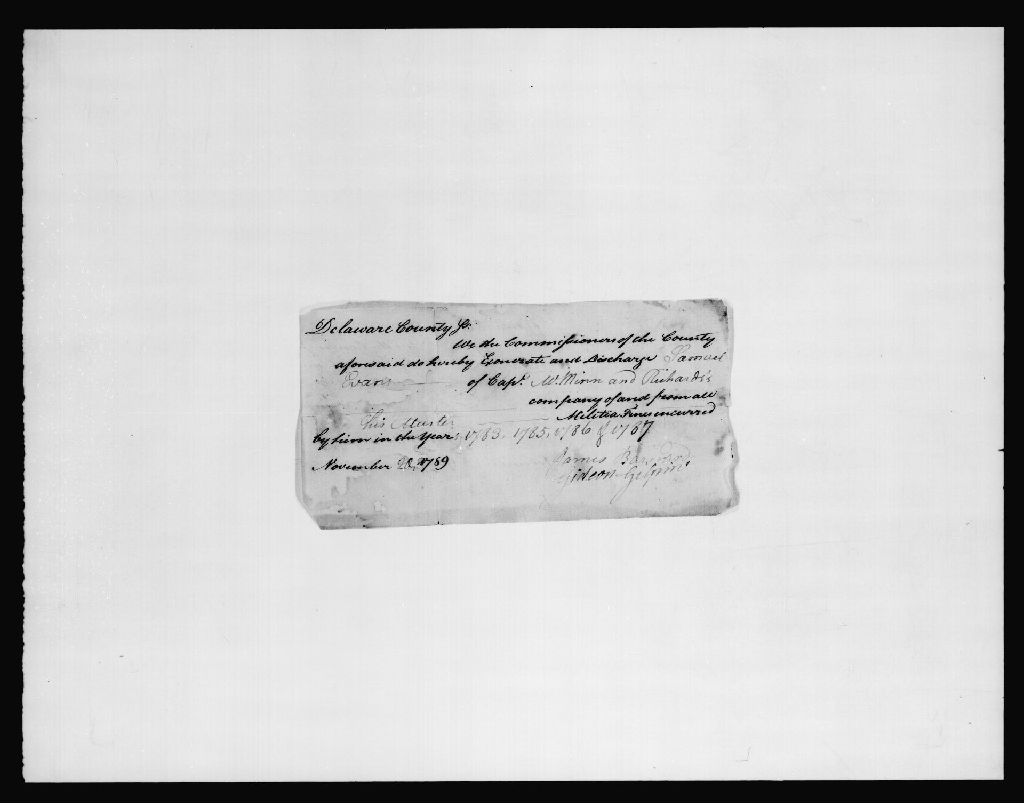 Delaware County Ss.
We the Commissioners of the County
aforesaid do hereby Exonerate and Discharge Samuel
Evans of Capt. McMinn and Richards's
company of and from all
Militia Fines incurred
this Muster
by him in the Years 1783. 1785, 1786 & 1787
November 1789
James Barnard
Gideon Gilpin